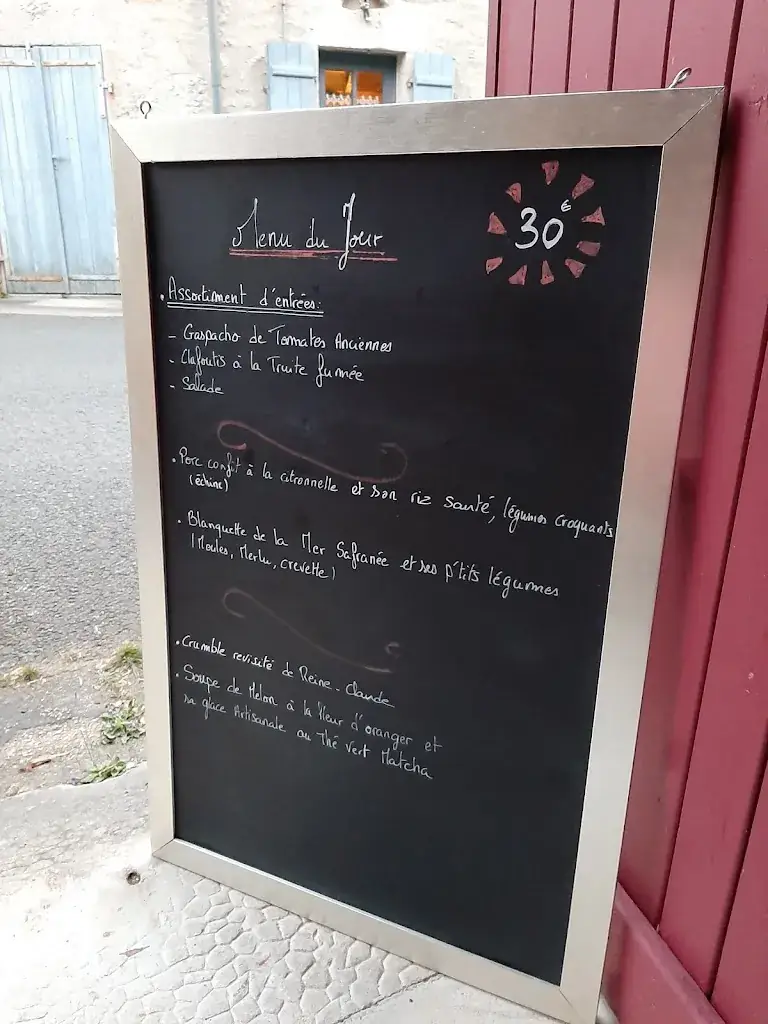 Menu du Jour
30€
• Assortiment d'entrées:
- Gaspacho de Tomates Anciennes
- Clafoutis à la Truite fumée
- Salade
• Porc confit à la citronnelle et son riz santé, légumes croquants
(échine)
• Blanquette de la Mer Safranée et ses p'tits légumes
(Moules, Merlu, crevette)
• Crumble revisité de Reine-Claude
• Soupe de Melon à la fleur d'oranger et
sa glace Artisanale au Thé Vert Matcha